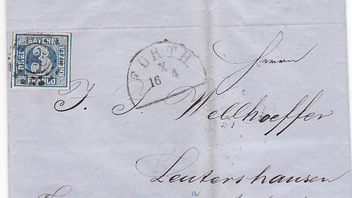 BAYERN
DREI 3 KREUZER
FRANCO
FÜRTH
X
16 4
Herrn
F. J. Wellhoeffer
Leutershausen